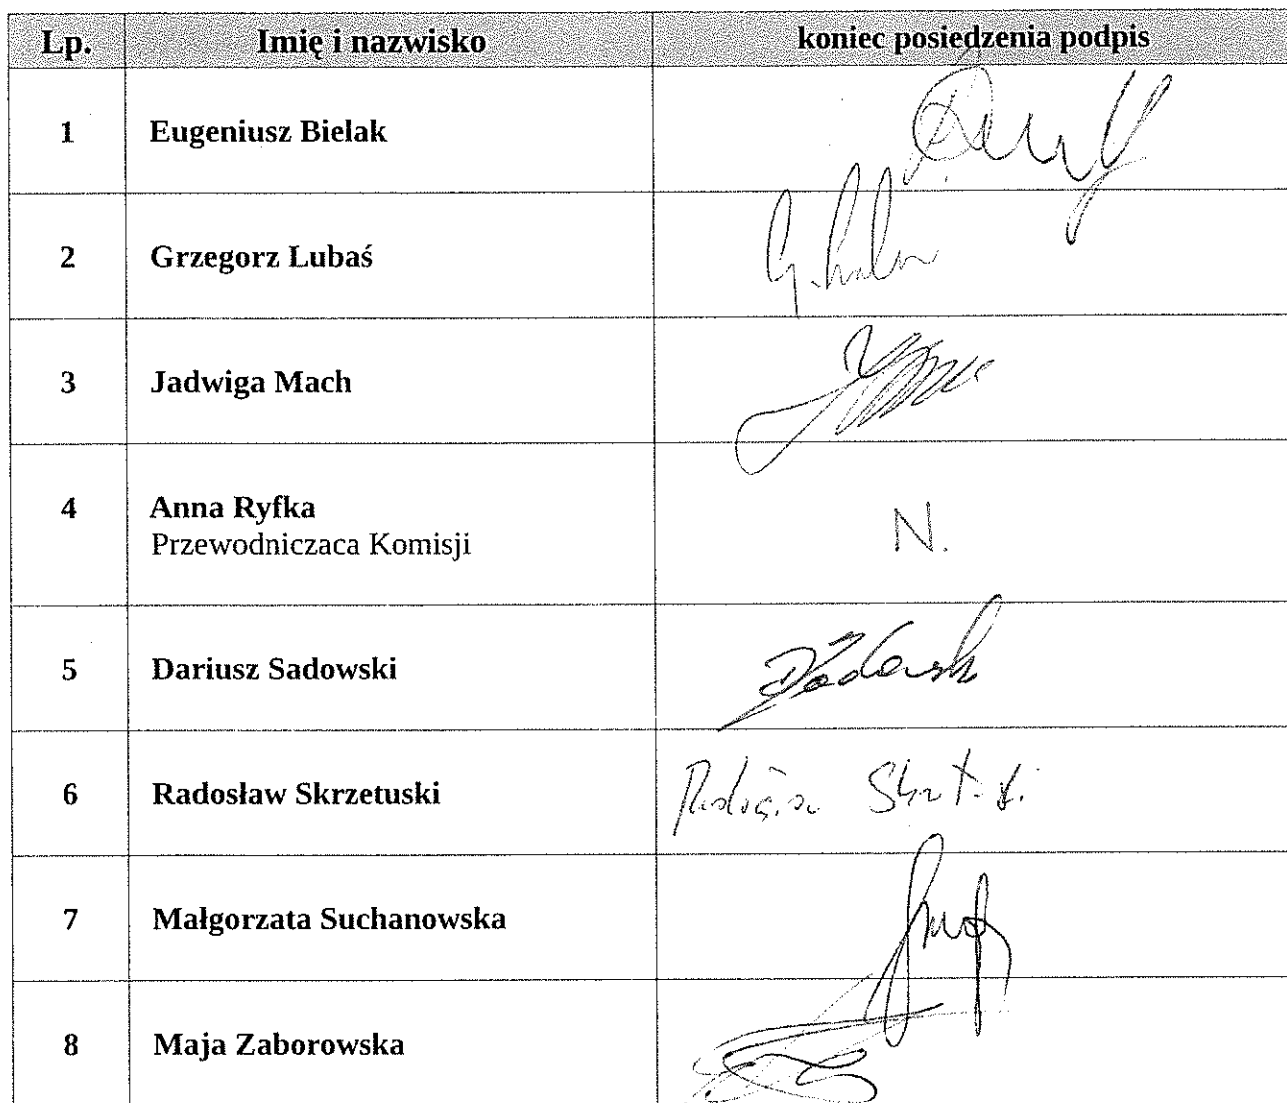 Lp. Imię i nazwisko koniec posiedzenia podpis
1 Eugeniusz Bielak
2 Grzegorz Lubaś
3 Jadwiga Mach
4 Anna Ryfka N.
Przewodniczaca Komisji
5 Dariusz Sadowski
6 Radosław Skrzetuski
7 Małgorzata Suchanowska
8 Maja Zaborowska